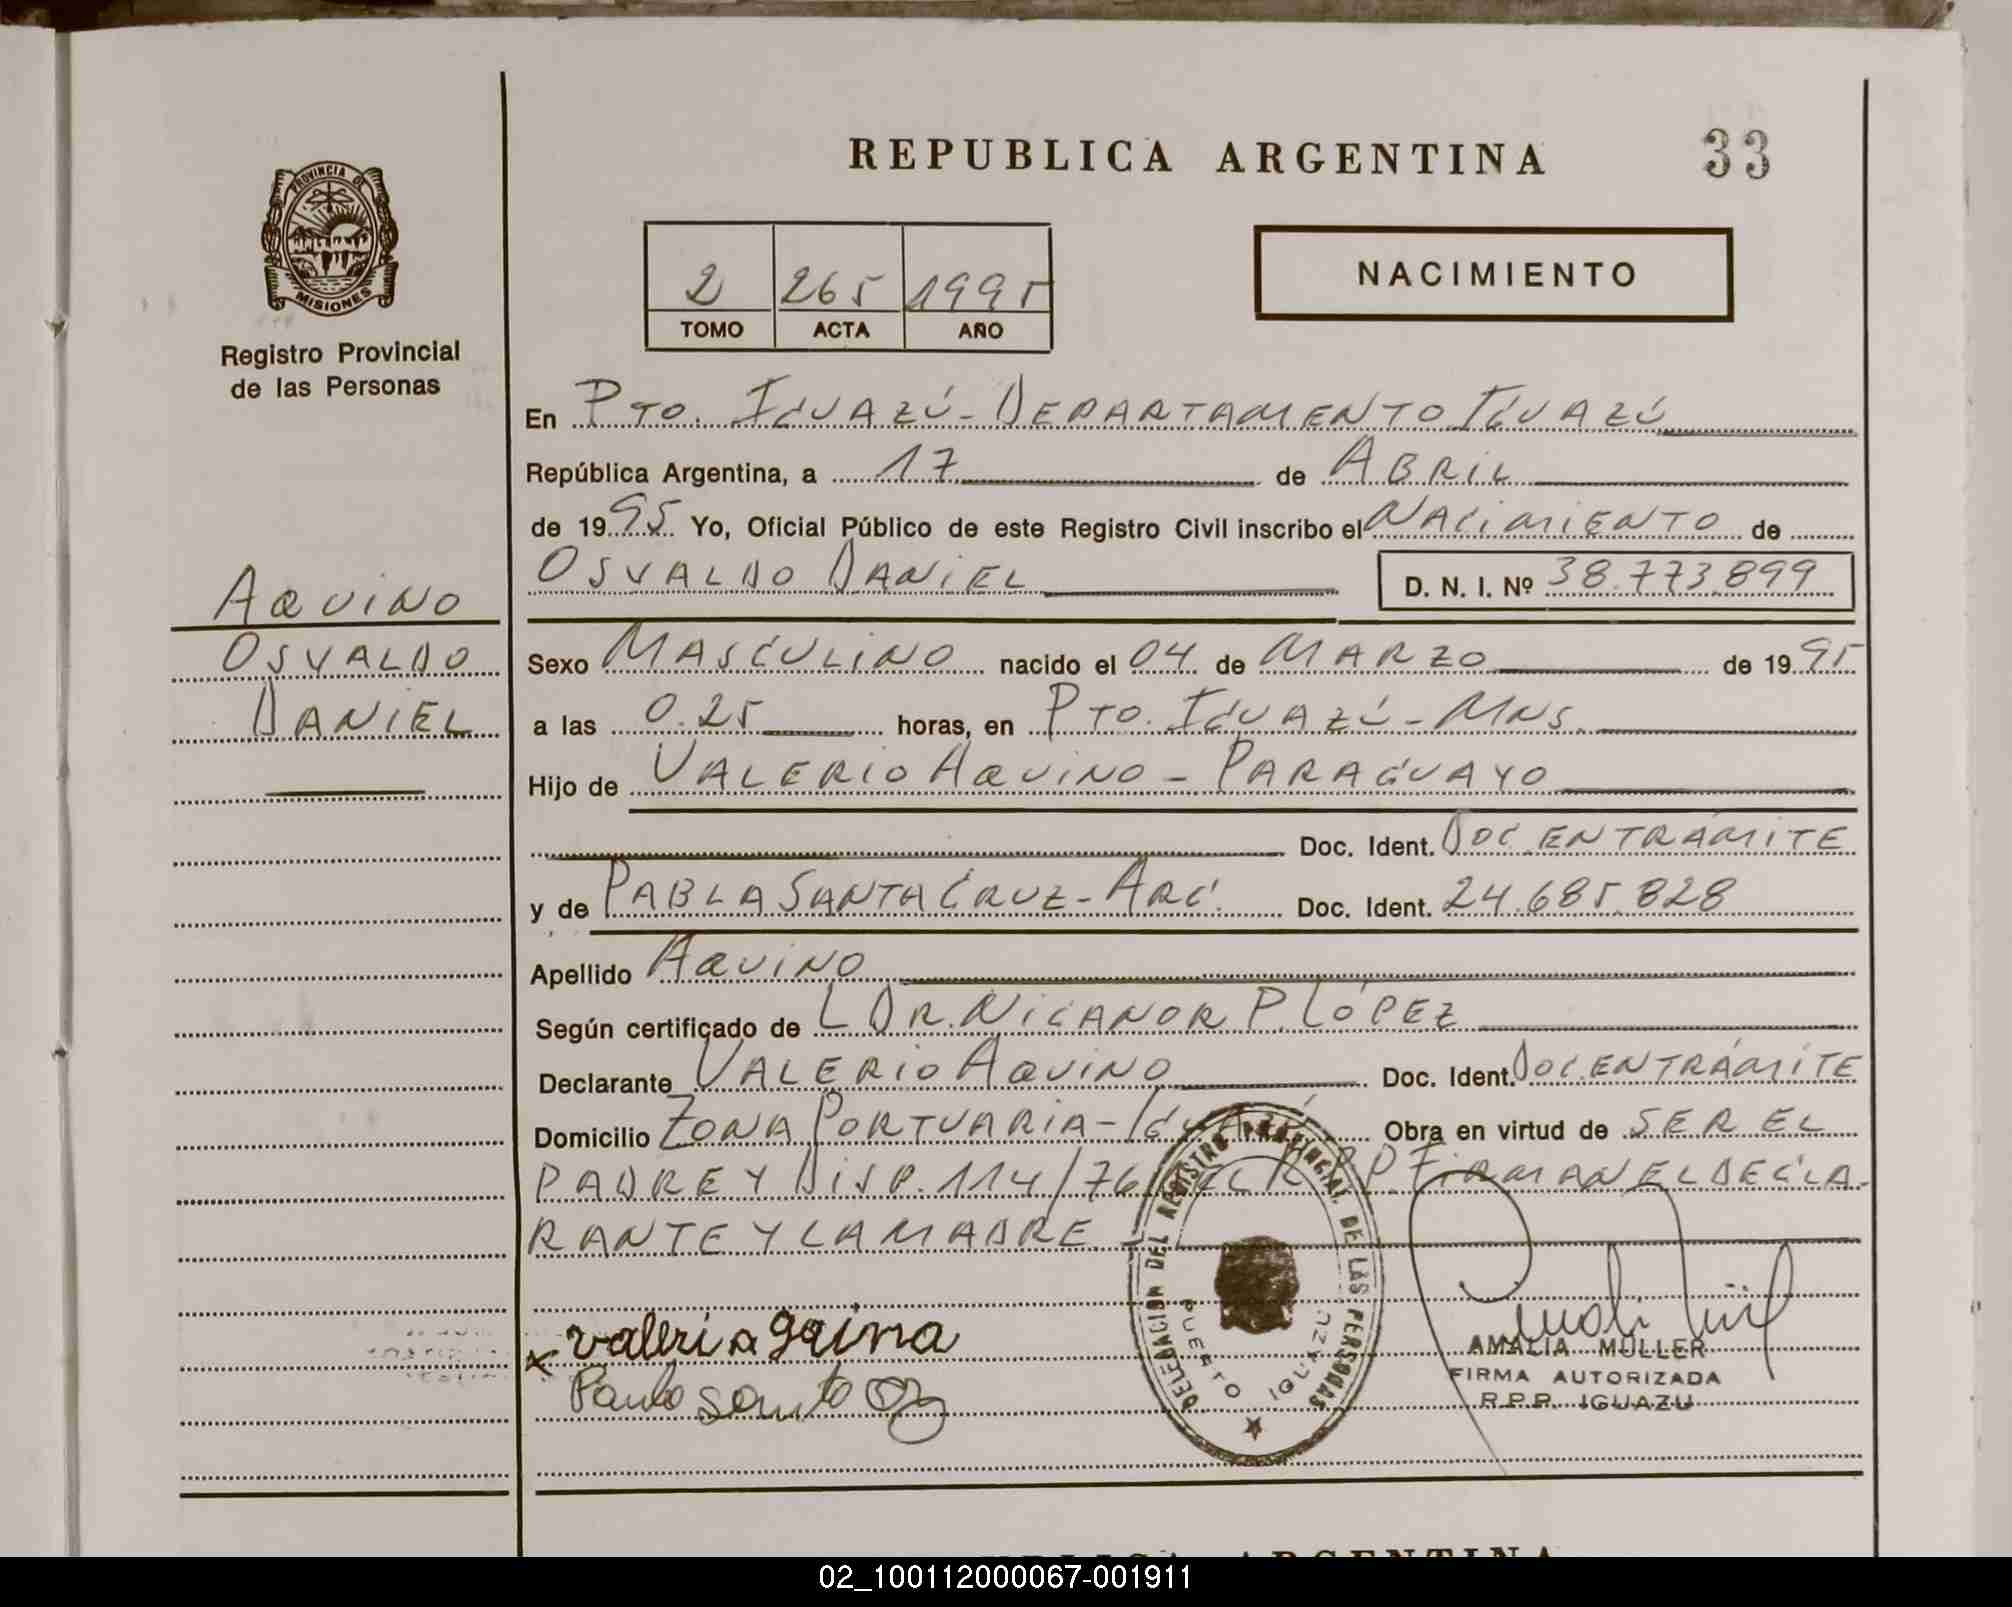 REPUBLICA ARGENTINA 33
PROVINCIA DE MISIONES
Registro Provincial
de las Personas
2 265 1995
TOMO ACTA AÑO
NACIMIENTO
En PTO. IGUAZÚ - DEPARTAMENTO IGUAZÚ
República Argentina, a 17 de ABRIL
de 1995 Yo, Oficial Público de este Registro Civil inscribo el NACIMIENTO de
OSVALDO DANIEL D. N. I. Nº 38.773.899
AQUINO
OSVALDO
DANIEL
Sexo MASCULINO nacido el 04 de MARZO de 1995
a las 0.25 horas, en PTO. IGUAZÚ - MNS.
Hijo de VALERIO AQUINO - PARAGUAYO
Doc. Ident. DOC. EN TRÁMITE
y de PABLA SANTA CRUZ - ARG. Doc. Ident. 24.685.828
Apellido AQUINO
Según certificado de L DR. NICANOR P. LÓPEZ
Declarante VALERIO AQUINO Doc. Ident. DOC. EN TRÁMITE
Domicilio ZONA PORTUARIA - IGUAZÚ Obra en virtud de SER EL
PADRE Y DISP. 114/76 FIRMAN EL DECLA-
RANTE Y LA MADRE
DELEGACION DEL REGISTRO PROVINCIAL DE LAS PERSONAS
PUERTO IGUAZU
AMALIA MULLER
FIRMA AUTORIZADA
R.P.P. IGUAZU
REPUBLICA ARGENTINA
02_100112000067-001911